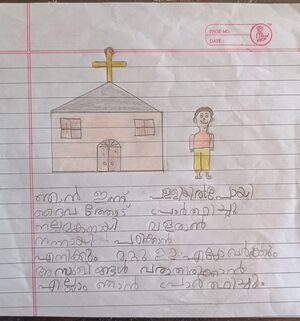 PAGE NO.:
DATE:
ഞാൻ ഇന്ന് പള്ളിയിൽപോയി
ദൈവത്തോട് പ്രാർത്ഥിച്ചു
നല്ലവനായി വളരാൻ
നന്നായി പഠിക്കാൻ
എനിക്കും മറ്റു എല്ലാവർക്കും
അസുഖങ്ങൾ വരാതിരിക്കാൻ
എല്ലാം ഞാൻ പ്രാർത്ഥിച്ചു.